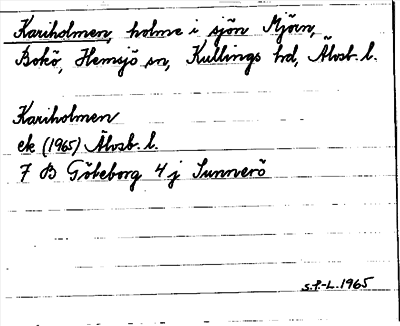 Kariholmen, holme i sjön Mjörn,
Bokö, Hemsjö sn, Kullings hd, Älvsb. l.
Kariholmen
ek (1965) Älvsb. l.
7 B Göteborg 4 j Sunnerö
S.F.-L. 1965